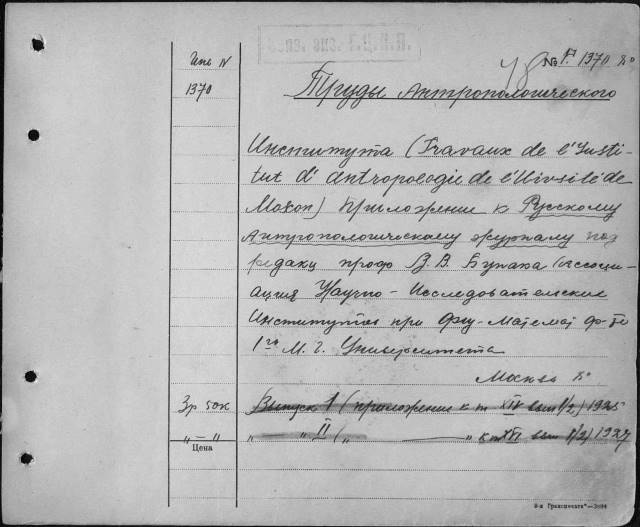 Инв N № 1370 8º
1370 Труды Антропологического
Института (Travaux de l'Insti-
tut d'Antropologie de l'Uivsité de
Moxon) Приложение к Русскому
Антропологическому журналу под
редакц проф В. В. Бунака (Ассоци-
ация Научно-Исследовательских
Институтов при Физ-Математ ф-те
1го М. Г. Университета
Москва 8º
3р 50к Выпуск 1 (приложение к т XIV вып 1/2) 1925
„ — „ „ „ II („ „ к т XVI вып 1/2) 1927
Цена